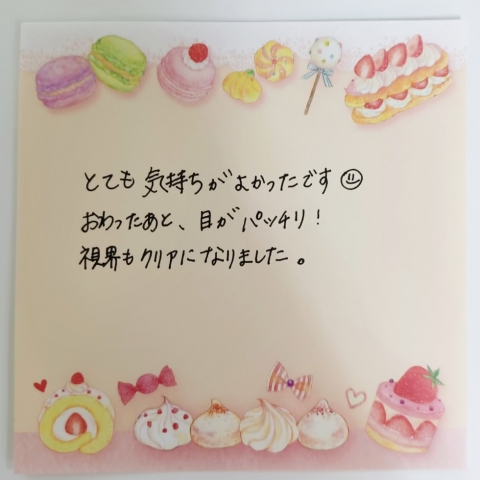 とても気持ちがよかったです☺
おわったあと、目がパッチリ!
視界もクリアになりました。